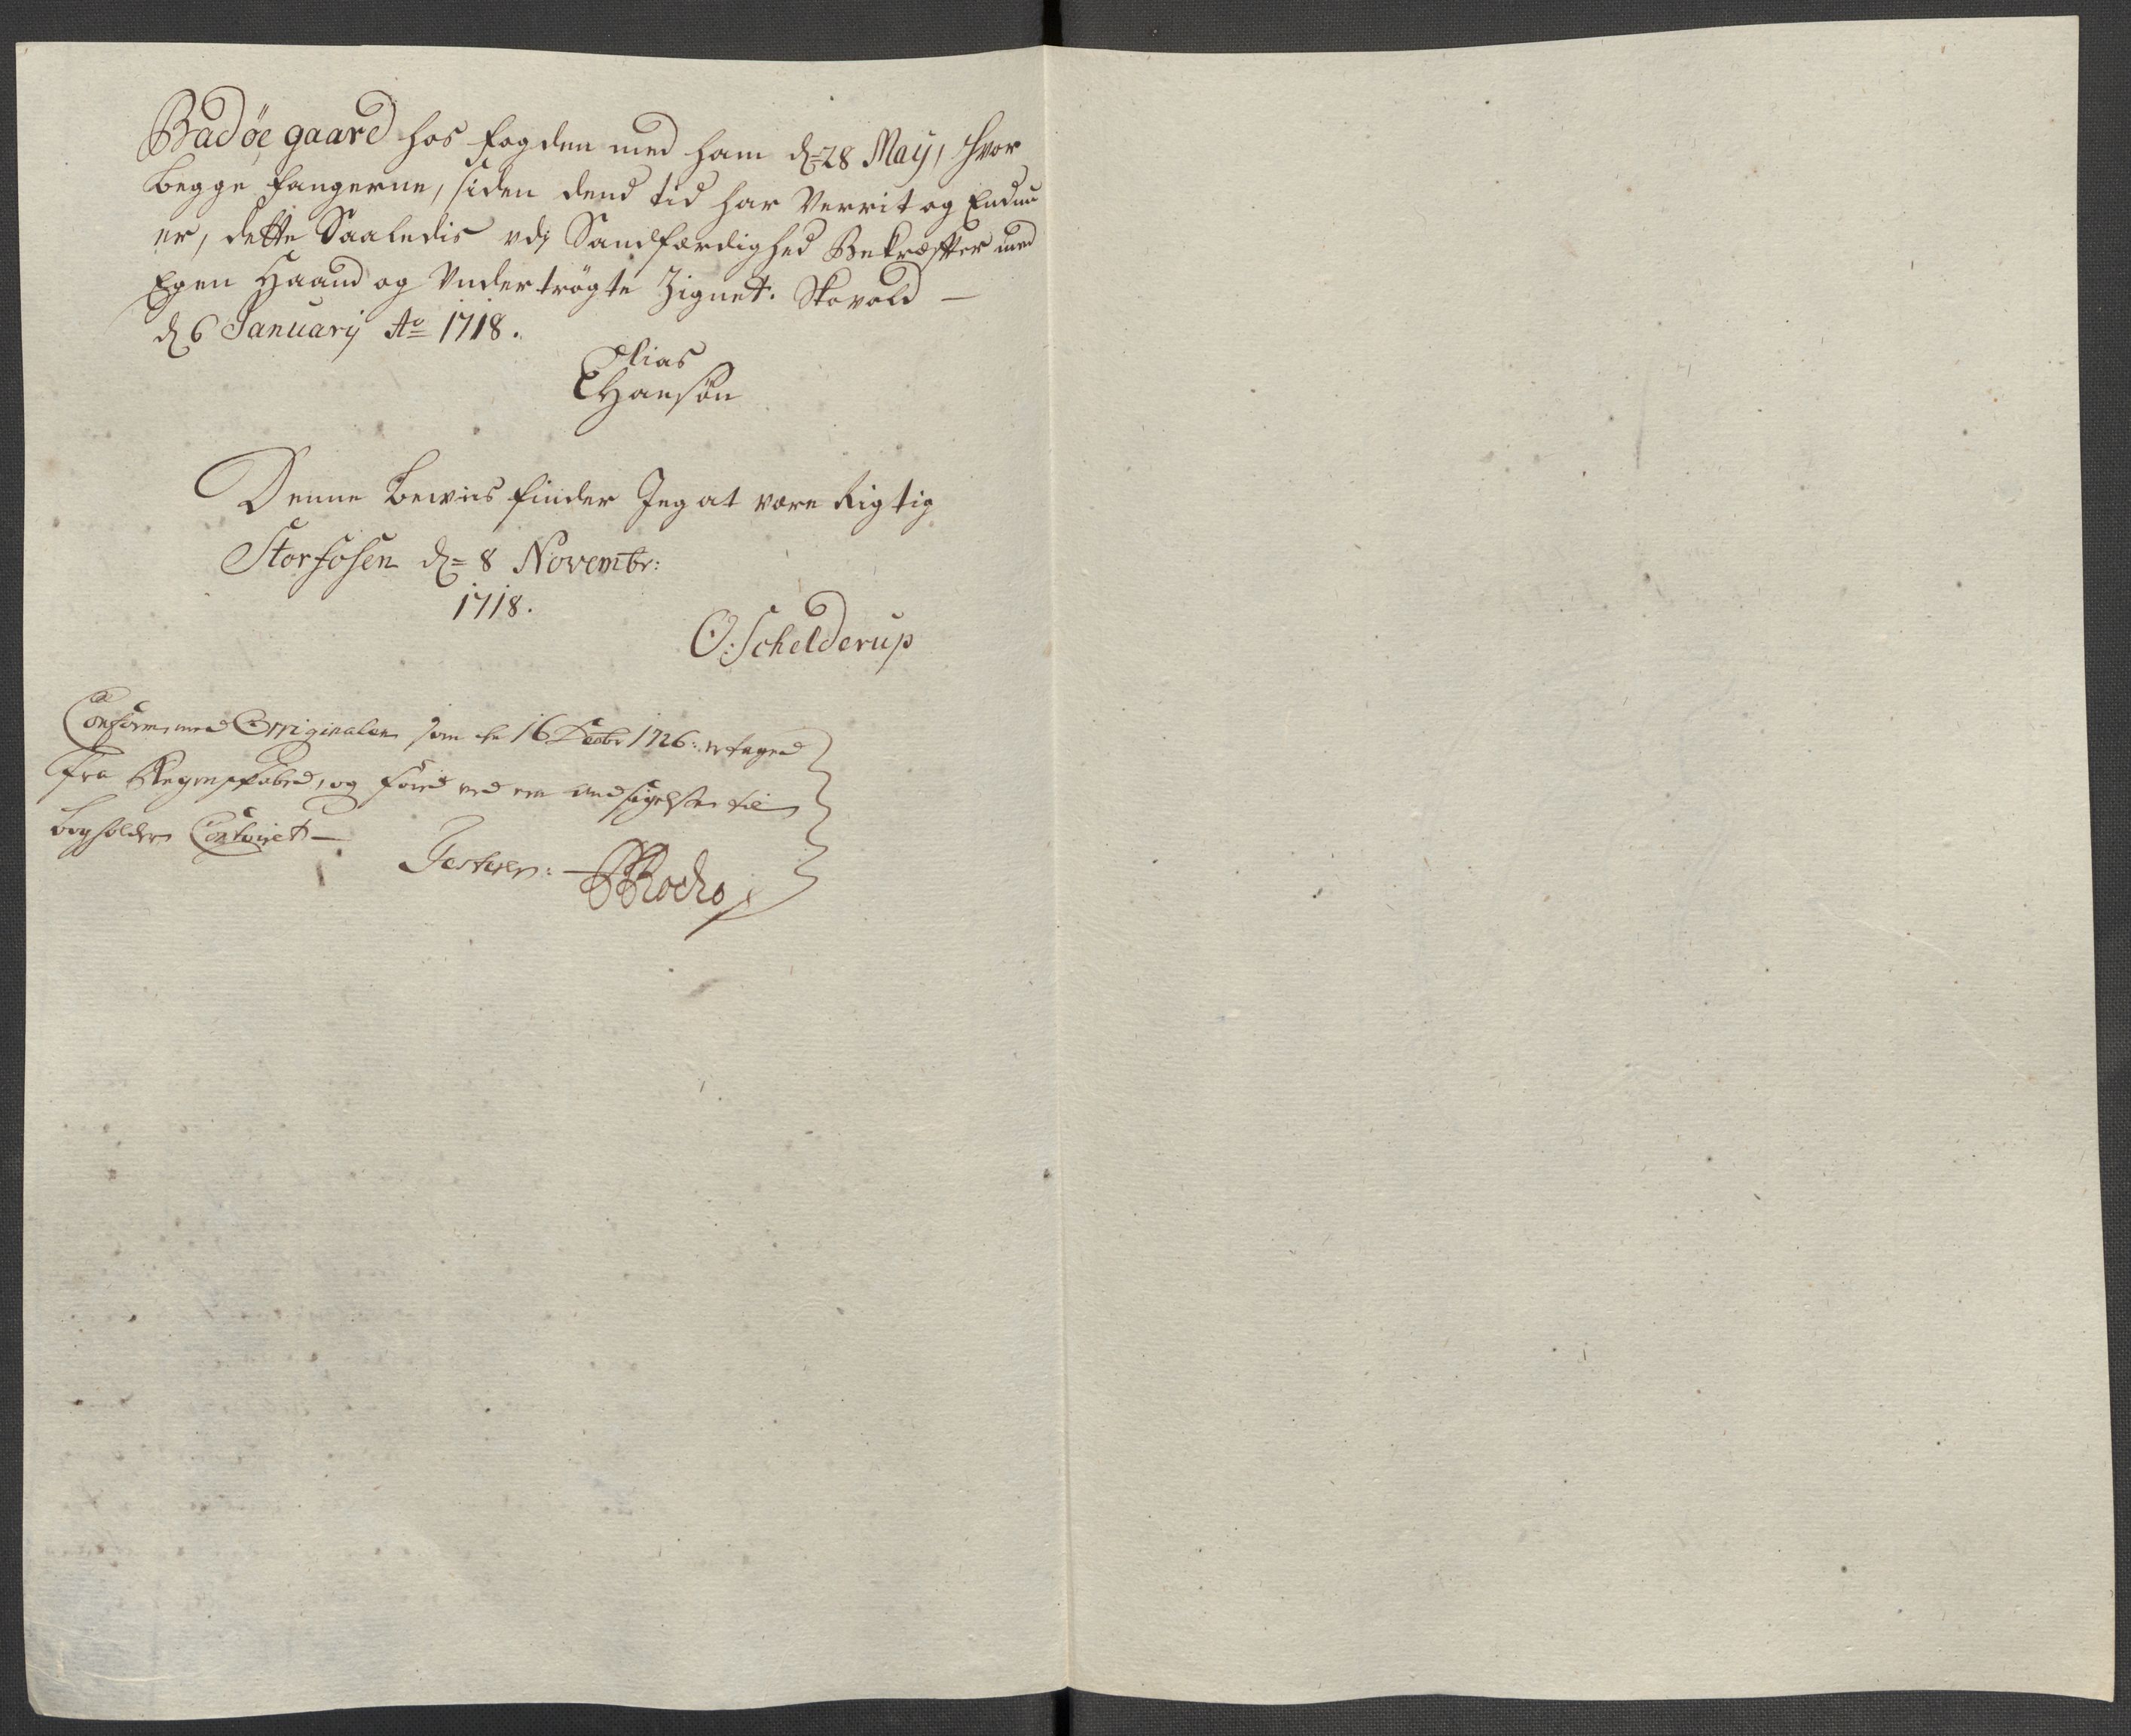 Badöe gaard hos fogden med ham d= 28 Maij, hvor
begge fangerne, siden dend tid har Verrit og Endnu
er, dette Saaledis udj Sandfærdighed Bekræfter med
Egen Haand og Undertrögte Zignet. Skovold —
d 6 Januarij Ao 1718.
Elias
Hansön
Denne beviis finder Jeg at være Rigtig
Storfosen d= 8 Novembr:
1718.
O: Schelderup
Conform med Originalen som de 16 Decbr 1726: er tagen
fra Regenskabed, og förd ved en antegnelse til
bogholder Contoiret —
Testerer: Rocho